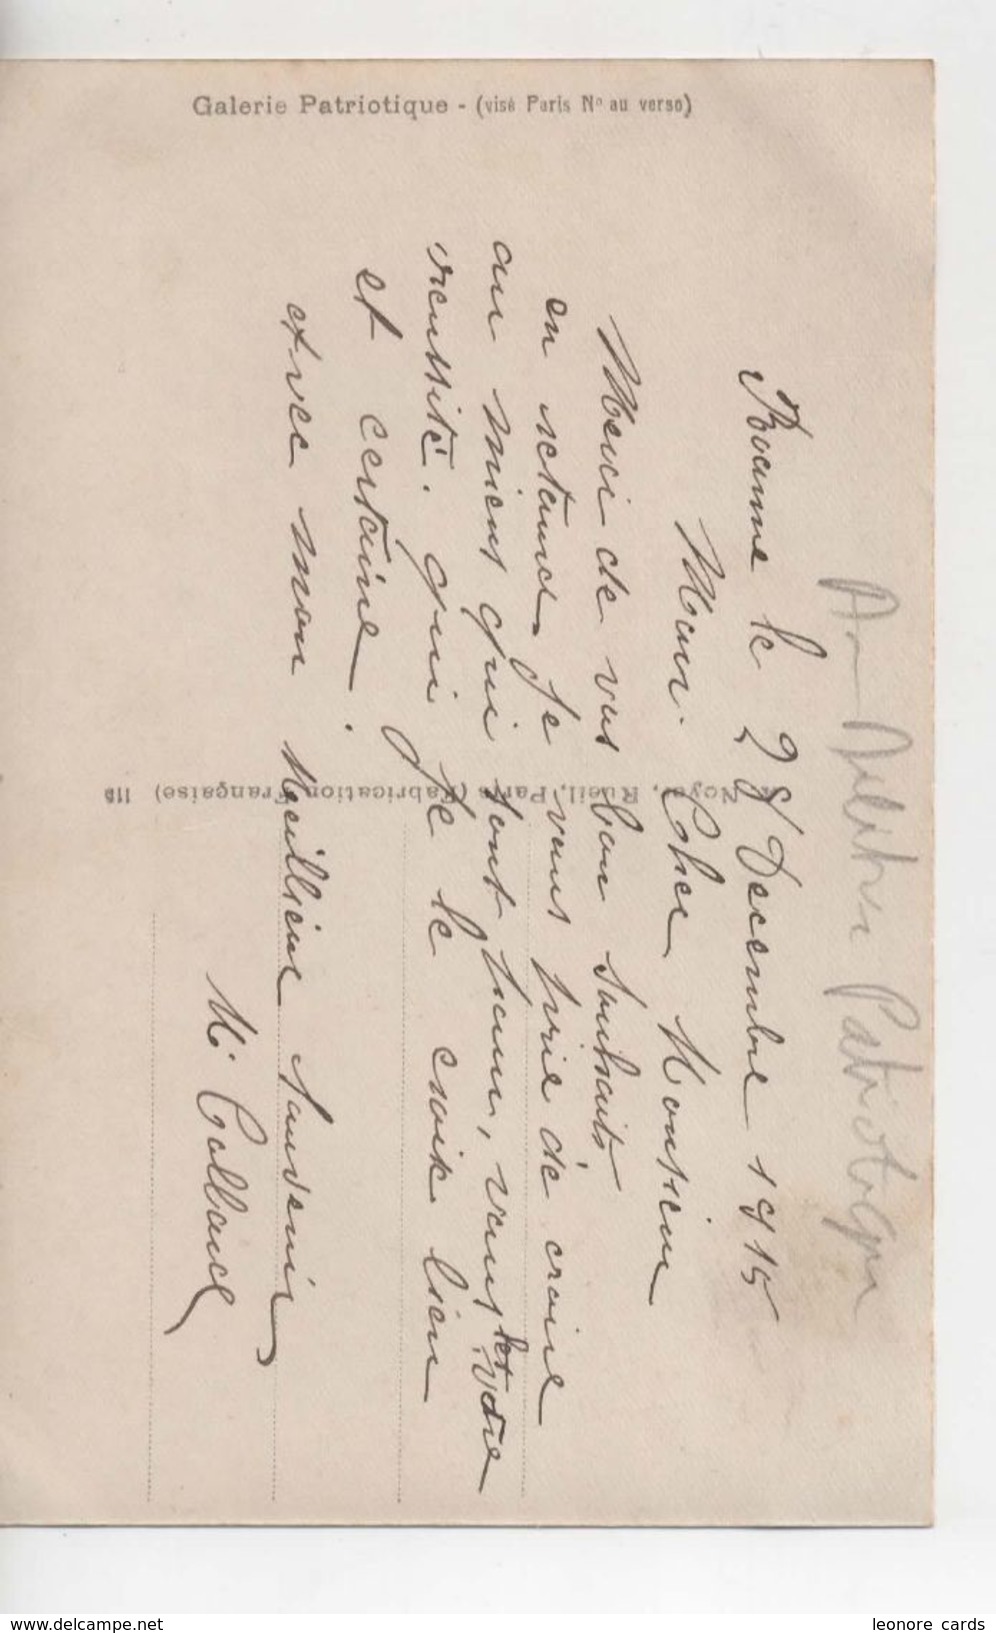 Galerie Patriotique - (visé Paris No au verso)
Militaire Patriotique
Roanne le 28 Decembre 1915
Mon Cher Monsieur
Merci de vos bon souhaits
en retours je vous prie de croire
au miens qui sont pour, vous et votre
reussite. qui je le crois bien
et certaine.
avec mon Meilleur Souvenir
M. Gallaud
Noyer, Rueil, Paris (Fabrication Française) 113
www.delcampe.net
leonore cards